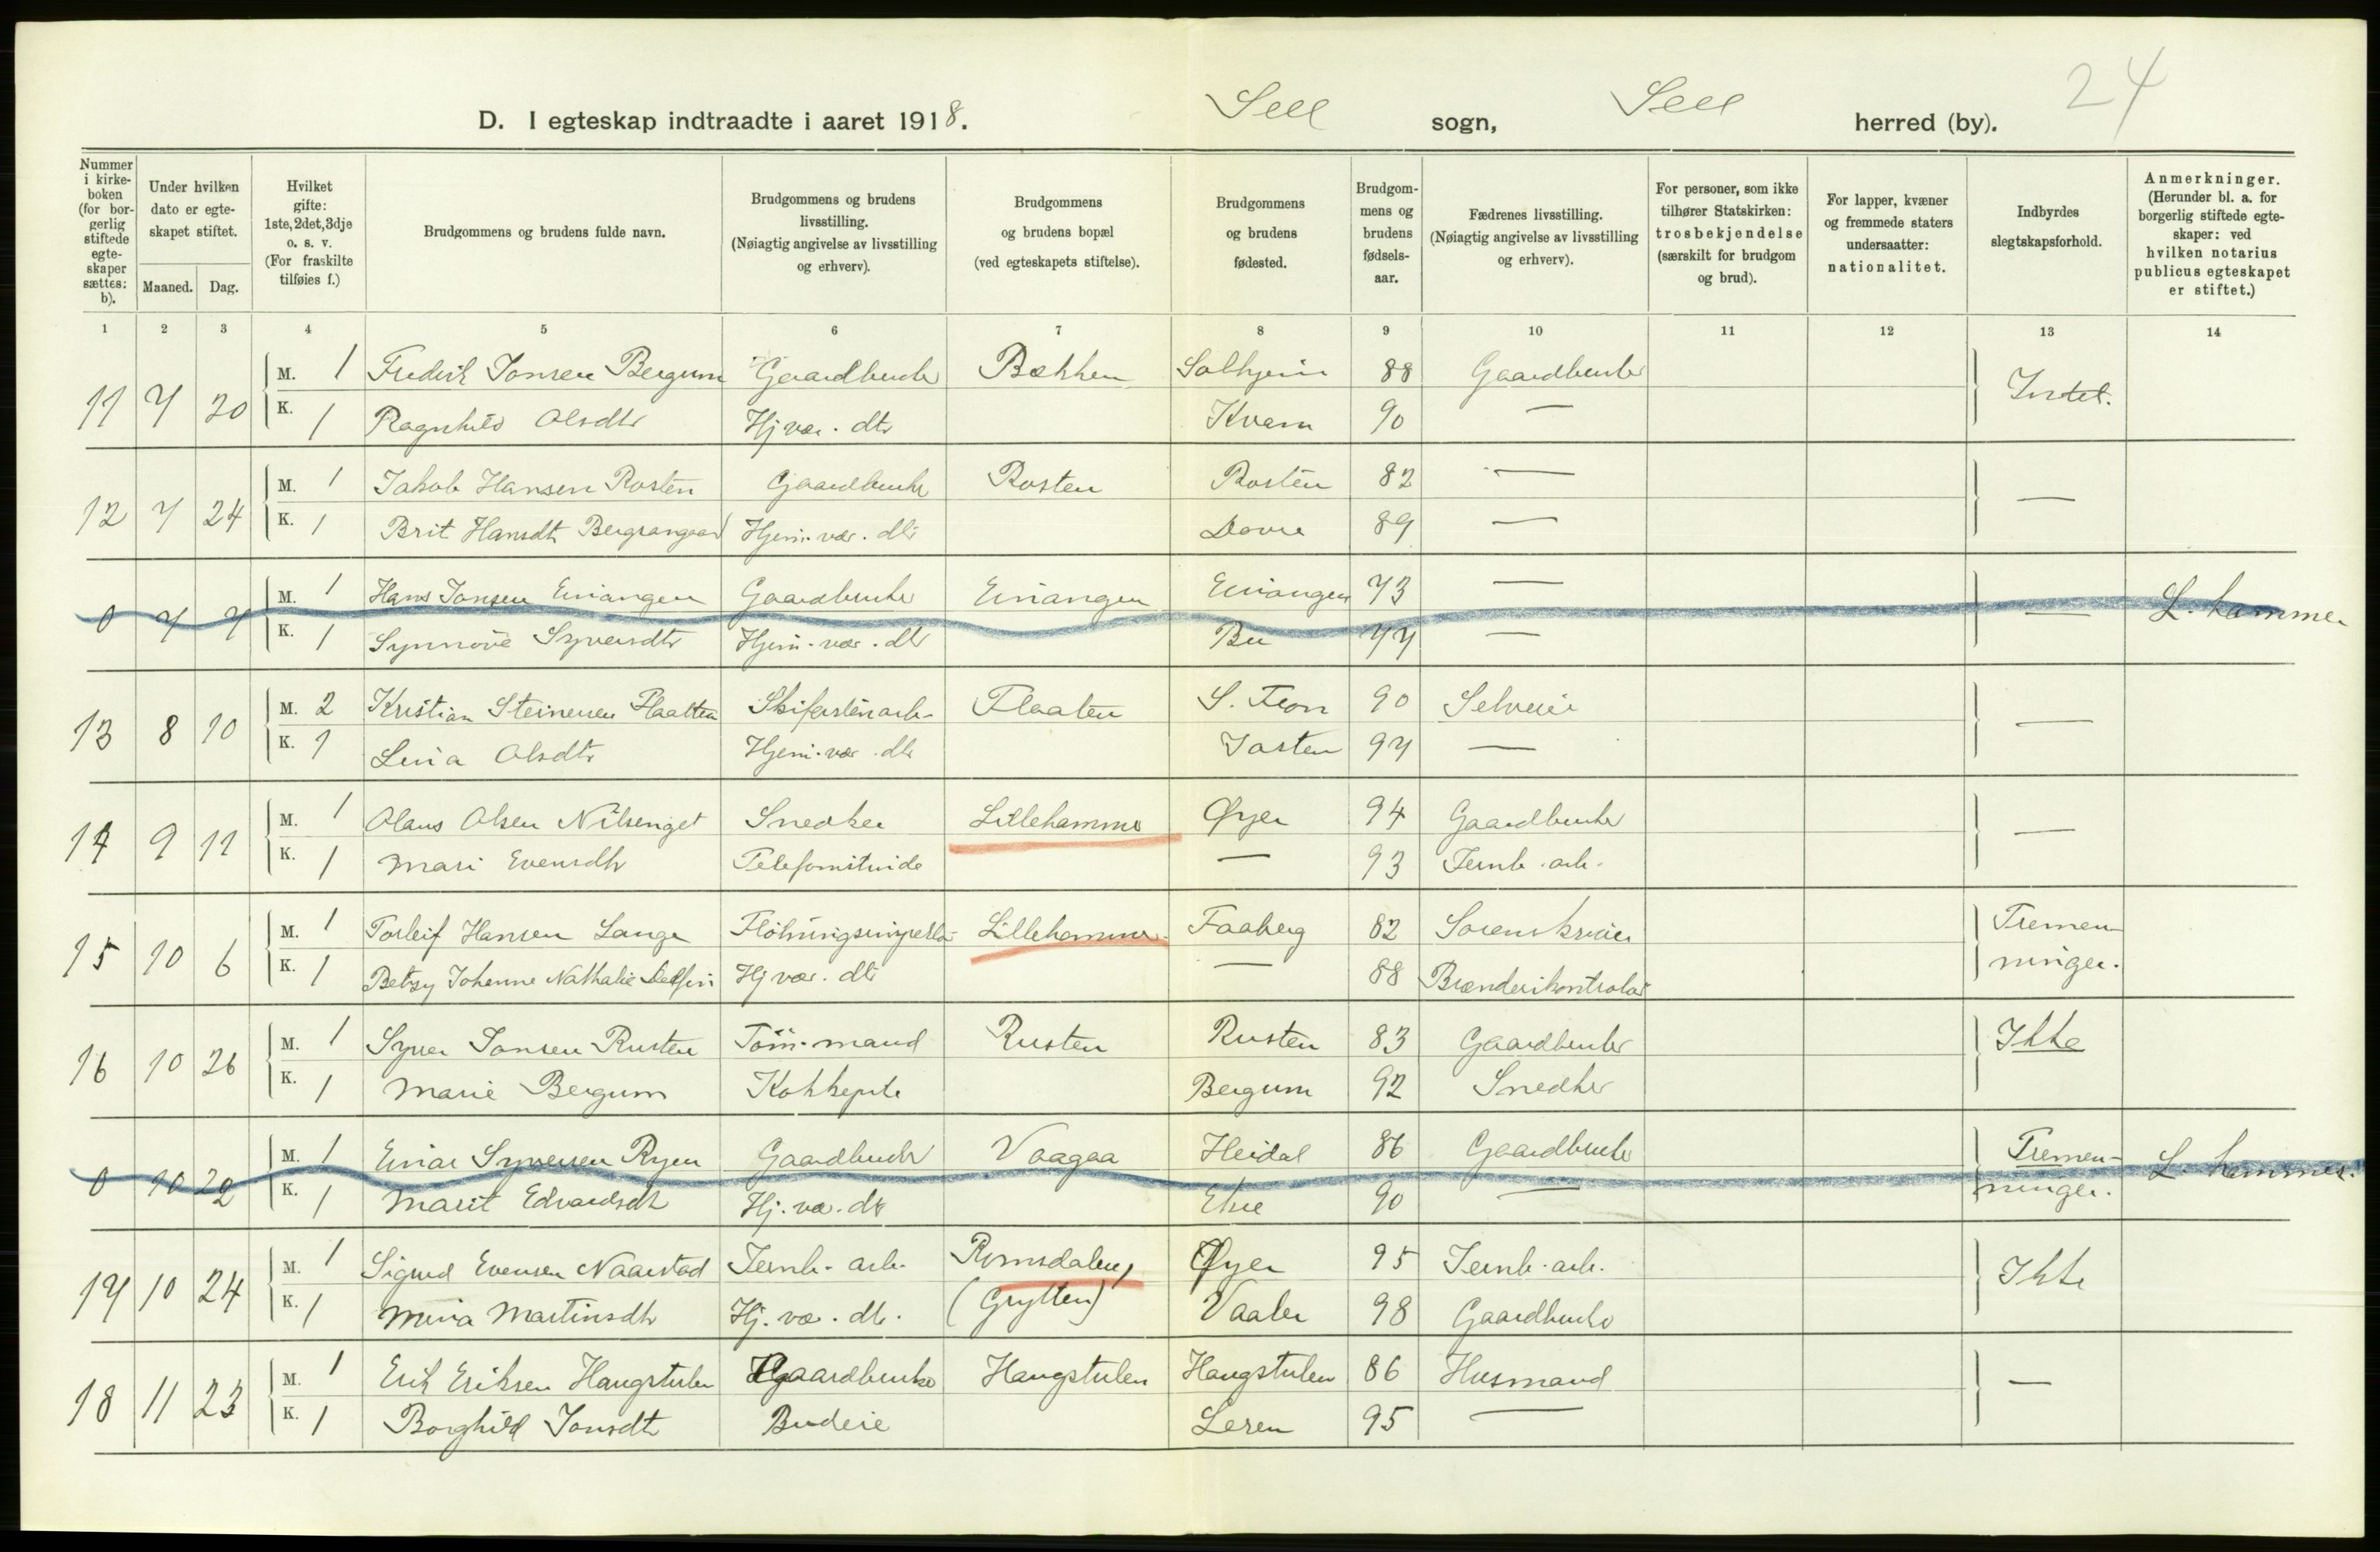 24
D. I egteskap indtraadte i aaret 1918. Sell sogn, Sell herred (by).
Nummer i kirkeboken (for borgerlig stiftede egteskaper sættes: b).
Under hvilken dato er egteskapet stiftet.
Maaned. Dag.
Hvilket gifte: 1ste, 2det, 3dje o. s. v. (For fraskilte tilføies f.)
Brudgommens og brudens fulde navn.
Brudgommens og brudens livsstilling. (Nøiagtig angivelse av livsstilling og erhverv).
Brudgommens og brudens bopæl (ved egteskapets stiftelse).
Brudgommens og brudens fødested.
Brudgommens og brudens fødselsaar.
Fædrenes livsstilling. (Nøiagtig angivelse av livsstilling og erhverv).
For personer, som ikke tilhører Statskirken: trosbekjendelse (særskilt for brudgom og brud).
For lapper, kvæner og fremmede staters undersaatter: nationalitet.
Indbyrdes slegtskapsforhold.
Anmerkninger. (Herunder bl. a. for borgerlig stiftede egteskaper: ved hvilken notarius publicus egteskapet er stiftet.)
1 2 3 4 5 6 7 8 9 10 11 12 13 14
11 7 20 M. 1 Fredrik Jonsen Bergum Gaardbruker Bækken Solhjem 88 Gaardbruker Intet.
K. 1 Ragnhild Olsdtr Hjvær. dtr Kvam 90 —
12 7 24 M. 1 Jakob Hansen Rosten Gaardbruker Rosten Rosten 82 — —
K. 1 Brit Hansdtr Hjem. vær. dtr Dovre 89 —
0 7 7 M. 1 Hans Jonsen Einangen Gaardbruker Einangen Einangen 73 — — L. hammer
K. 1 Synnöve Syversdtr Hjem. vær. dtr Bu 77 —
13 8 10 M. 2 Kristian Steinersen Flaatten Skiferstenarb. Flaaten S. Fron 90 Selveier —
K. 1 Lina Olsdtr Hjem. vær. dtr 97 —
14 9 11 M. 1 Olaus Olsen Nilsenget Snedker Lillehammer Øyer 94 Gaardbruker —
K. 1 Mari Evensdtr Telefonistinde — 93 Jernb. arb.
15 10 6 M. 1 Torleif Hansen Lange Flötningsinspektör Lillehammer Faaberg 82 Sorenskriver Tremen-
K. 1 Betzy Johanne Nathalie Hj vær. dtr — 88 Brænderikontrolör ninger.
16 10 26 M. 1 Syver Jonsen Rusten Töm. mand Rusten Rusten 83 Gaardbruker Ikke
K. 1 Marie Bergum Kokkepike Bergum 92 Snedker
0 10 22 M. 1 Einar Syversen Ryen Gaardbruker Vaagaa Heidal 86 Gaardbruker Tremen- L. hammer.
K. 1 Marit Edvardsdtr Hj. væ. dtr 90 — ninger.
17 10 24 M. 1 Sigurd Evensen Naarstad Jernb. arb. Romsdalen, Øyer 95 Jernb. arb. Ikke
K. 1 Mina Martinsdtr Hj. væ. dtr. (Grytten) Vaaler 98 Gaardbruker
18 11 23 M. 1 Erik Eriksen Haugstulen Gaardbruker Haugstulen Haugstulen 86 Husmand —
K. 1 Borghild Jonsdtr Budeie Leren 95 —